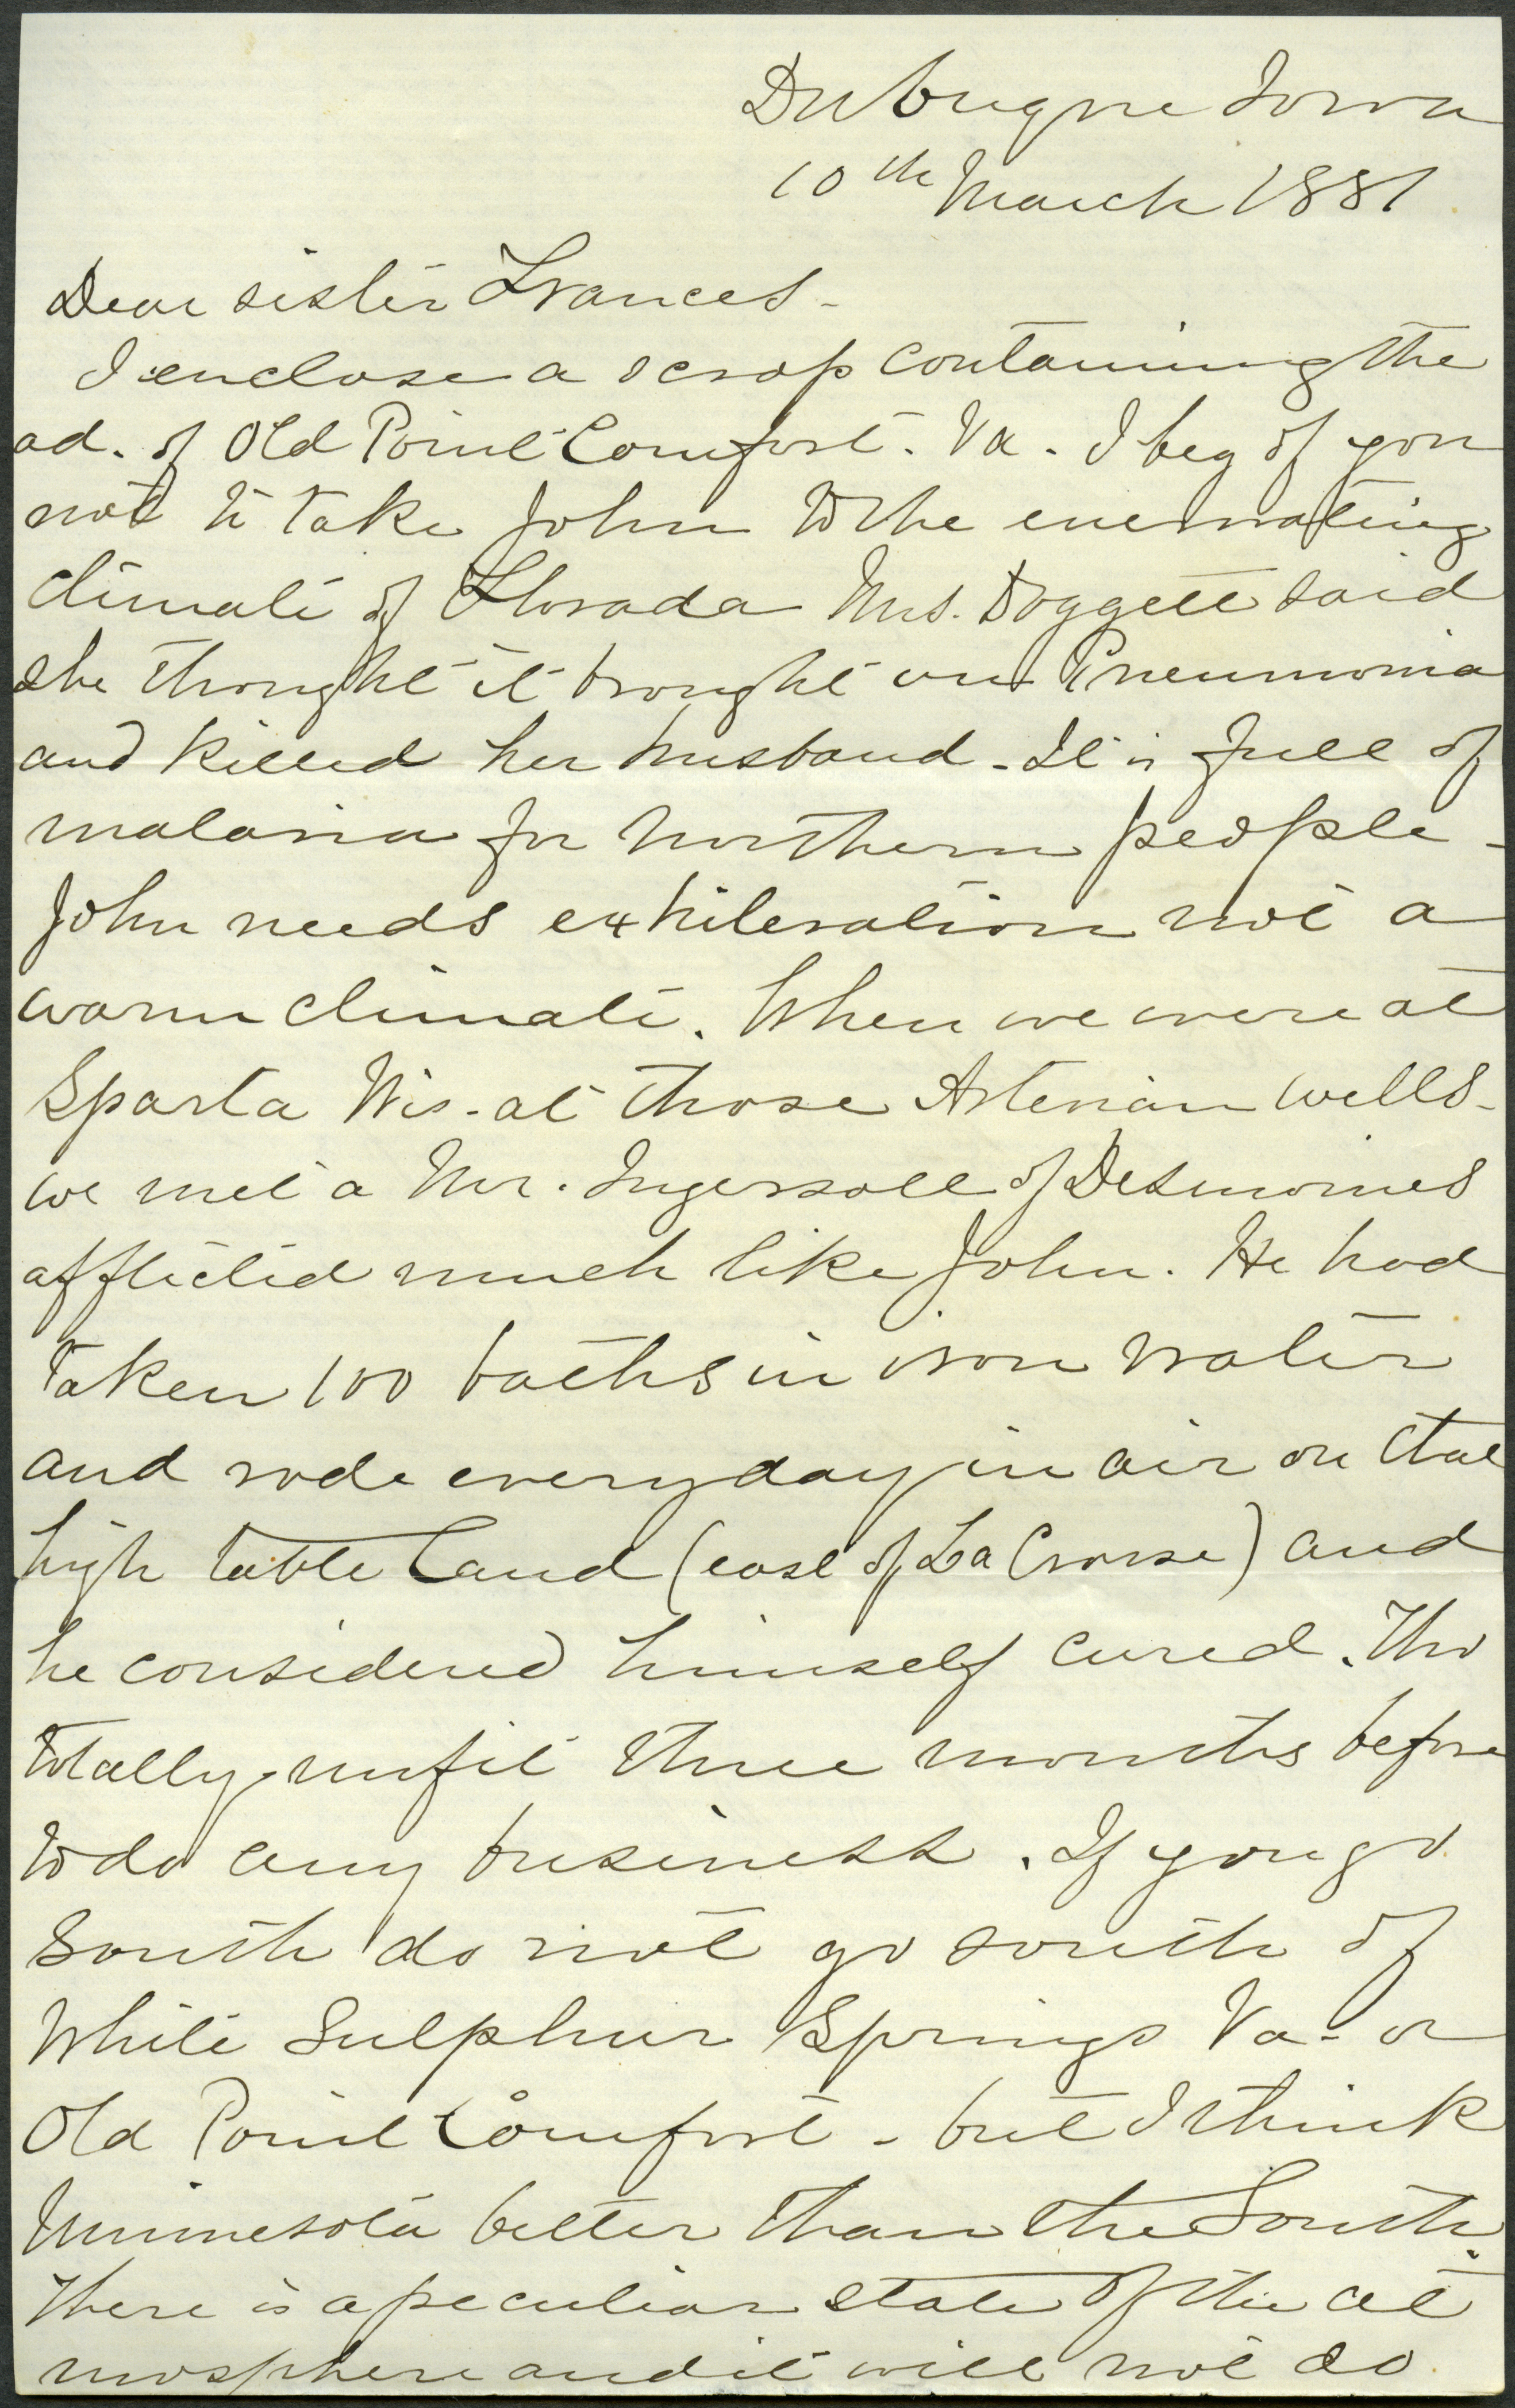 Dubuque Iowa
10th March 1881
Dear sister Frances -
I enclose a scrap containing the
ad. of Old Point Comfort. Va. I beg of you
not to take John to the enervating
climate of Florada Mrs. Doggett said
she thought it brought on Pneumonia
and killed her husband - It is full of
malaria for Northern people -
John needs exhileration not a
warm climate. When we were at
Sparta Wis - at those Artesian wells -
we met a Mr. Ingersoll of Desmoines
afflicted much like John. He had
taken 100 baths in iron water
and rode everyday in air on that
high table land (east of La Crosse) and
he considered himself cured. Tho
totally unfit three months before
to do any business. If you go
South do not go south of
White Sulphur Springs Va - or
Old Point Comfort - but I think
Minnesota better than the South.
There is a peculiar state of the at
mosphere and it will not do